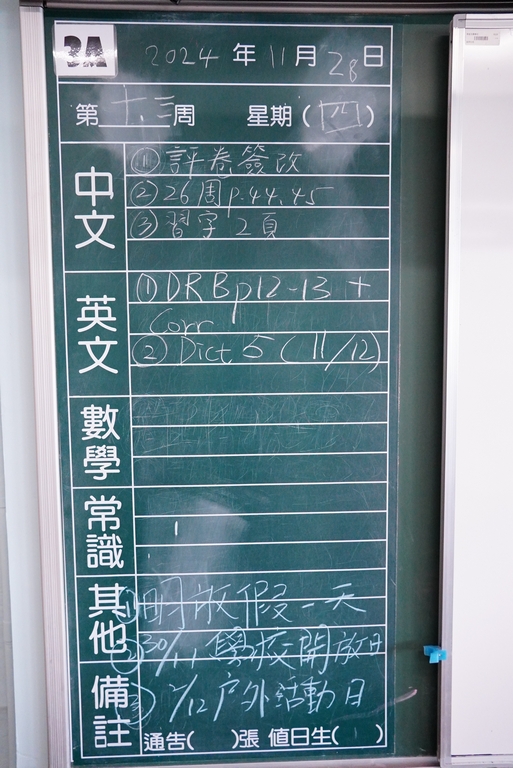 3A
2024 年 11 月 28 日
第 十三 周 星期 ( 四 )
中文
① 評卷簽改
② 26周 p.44, 45
③ 習字 2頁
英文
① DRB p12-13 +
Corr
② Dict 5 (11/12)
數學
常識
其他
① 明放假一天
② 30/11 學校開放日
備註
③ 2/12 戶外活動日
通告( )張 值日生( )